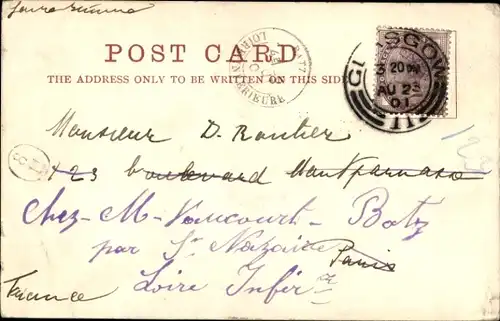 POST CARD
THE ADDRESS ONLY TO BE WRITTEN ON THIS SIDE
GLASGOW
20
AU 23
01
11
BATZ
LOIRE INFERIEURE
Monsieur D. Routier
123 boulevard Montparnasse
Chez M. Vaucourt - Batz
par St Nazaire
Paris
Loire Infre
France